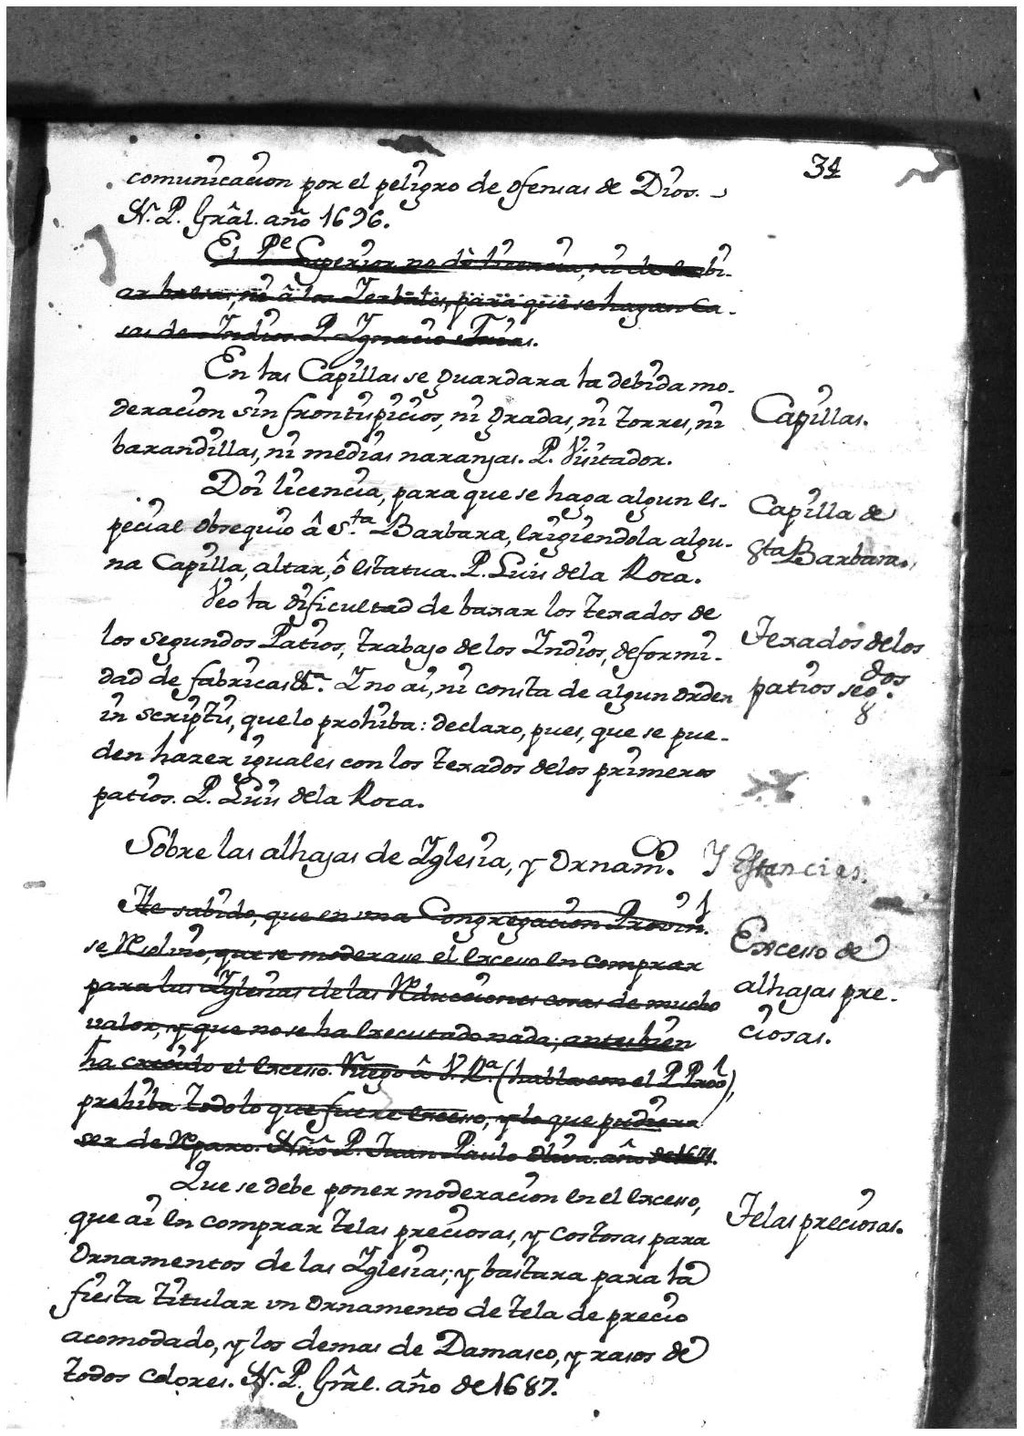 34
comunicacion por el peligro de ofensas de Dios.
N. P. Grâl. año 1696.
El Pe Superior no dè licencia, ni de
ni â los Yerbales, para que se hagan Ca-
sas de Indios. P. Ignacio
En las Capillas se guardara la debida mo-
deracion sin frontispicios, ni gradas, ni torres, ni
barandillas, ni medias naranjas. P. Visitador.
Capillas.
Doi licencia, para que se haga algun es-
pecial obsequio â Sta. Barbara, erigiendola algu-
na Capilla, altar, ô estatua. P. Luis dela Roca.
Capilla de
Sta Barbara.
Veo la dificultad de baxar los texados de
los segundos Patios, trabajo de los Indios, deformi-
dad de fabricas &a. I no ai, ni consta de algun orden
in scriptis, que lo prohiba: declaro, pues, que se pue-
den hazer iguales con los texados delos primeros
patios. P. Luis dela Roca.
Texados delos
patios segdos.
Sobre las alhajas de Iglesia, y Ornam. Y Estancias.
He sabido, que en una Congregacion Provinl.
se resolvio, que se moderase el excesso en comprar
para las Iglesias de las Reducciones cosas de mucho
valor, y que no se ha executado nada; antes bien
ha crecido el excesso. Ruego â V. Ra. (habla con el P Proal),
prohiba todo lo que fuere excesso, y lo que pudiera
ser de reparo. Nrô P. Juan Paulo Oliva año de 1671.
Excesso de
alhajas pre-
ciosas.
Que se debe poner moderacion en el excesso,
que ai en comprar telas preciosas, y costosas para
Ornamentos de las Iglesias; y bastara para la
fiesta titular un ornamento de tela de precio
acomodado, y los demas de Damasco, y rasos de
todos colores. N. P. Grâl. año de 1687.
Telas preciosas.